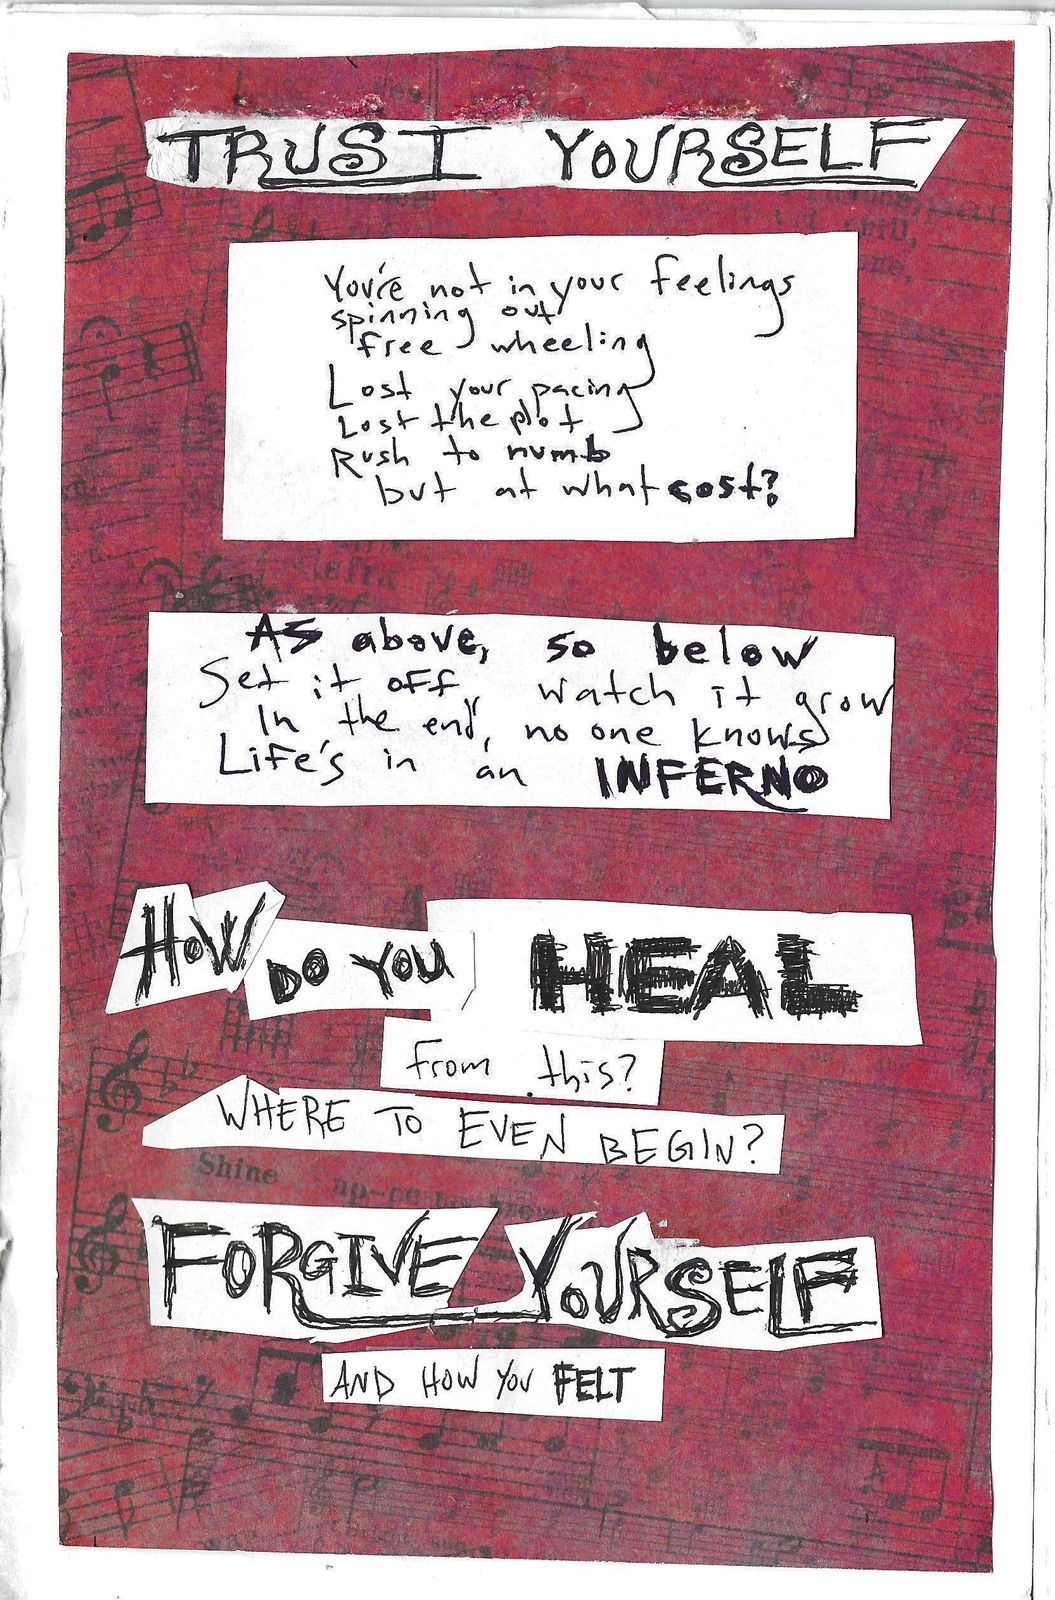 TRUST YOURSELF
You're not in your feelings
spinning out
free wheeling
Lost your pacing
Lost the plot
Rush to numb
but at what cost?
As above, so below
Set it off, watch it grow
In "the end", no one knows
Life's in an INFERNO
HOW DO YOU HEAL
from this?
WHERE TO EVEN BEGIN?
Shine
FORGIVE YOURSELF
AND HOW YOU FELT